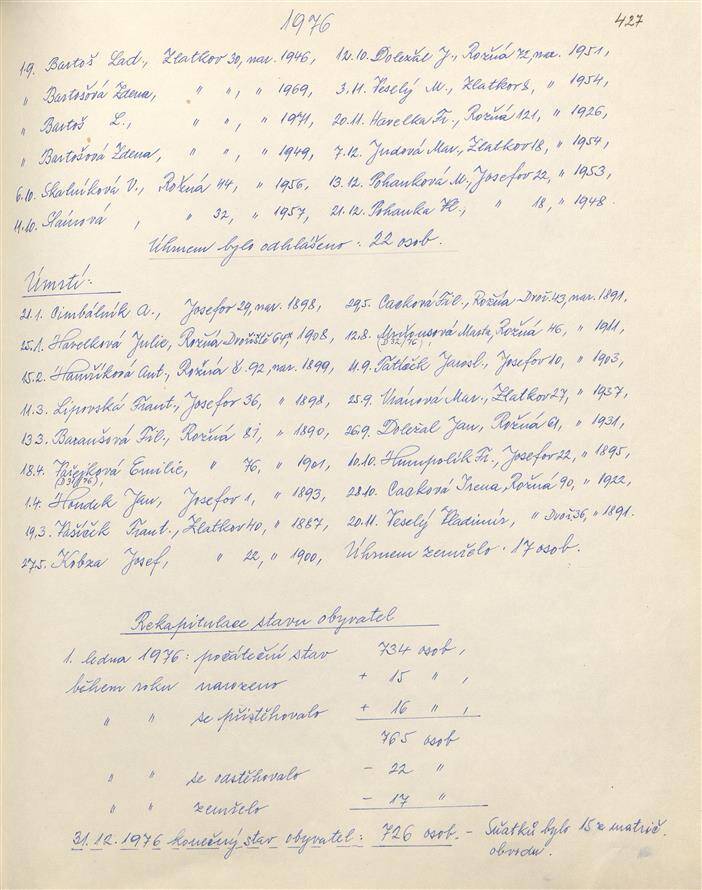 1976
427
1.9. Bartoš Lad., Zlatkov 30, nar. 1946, 12.10. Doležal J., Rožná 72, nar. 1951,
" Bartošová Zdena, " ", " 1969, 3.11. Veselý M., Zlatkov 8, " 1954,
" Bartoš L., " ", " 1971, 20.11. Havelka Fr., Rožná 121, " 1926,
" Bartošová Zdena, " ", " 1949, 7.12. Judová Mar., Zlatkov 18, " 1954,
6.10. Skalníková V., Rožná 44, " 1956, 13.12. Pohanková M., Josefov 22, " 1953,
11.10. , " 32, " 1957, 21.12. Pohanka , " 18, " 1948.
Úhrnem bylo odhlášeno : 22 osob.
Úmrtí:
21.1. Cimbálník A., Josefov 29, nar. 1898, 29.5. Cacková Fil., Rožná-Dvoř. 43, nar. 1891,
25.1. Havelková Julie, Rožná Dvořiště 64, " 1908, 12.8. Marta, Rožná 46, " 1911,
15.2. Hamříková Ant., Rožná č. 92, nar. 1899, 11.9. Tatíček Jarosl., Josefov 10, " 1903,
11.3. Lipovská Frant., Josefov 36, " 1898, 25.9. Mar., Zlatkov 27, " 1937,
13.3. Barančová Fil., Rožná 81, " 1890, 26.9. Doležal Jan, Rožná 61, " 1931,
18.4. Emilie, " 76, " 1901, 10.10. Humpolík Fr., Josefov 22, " 1895,
1.4. Houdek Jan, Josefov 1, " 1893, 28.10. Cacková Irena, Rožná 90, " 1922,
19.3. Vašíček Frant., Zlatkov 40, " 1887, 20.11. Veselý Vladimír, " Dvoř. 36, " 1891.
27.5. Kobza Josef, " 22, " 1900, Úhrnem zemřelo . 17 osob.
Rekapitulace stavu obyvatel
1. ledna 1976 : počáteční stav 734 osob,
během roku narozeno + 15 " ,
" " se přistěhovalo + 16 " ,
765 osob
" " se odstěhovalo - 22 "
" " zemřelo - 17 "
31.12.1976 konečný stav obyvatel : 726 osob. - Sňatků bylo 15 z matrič.
obvodu.